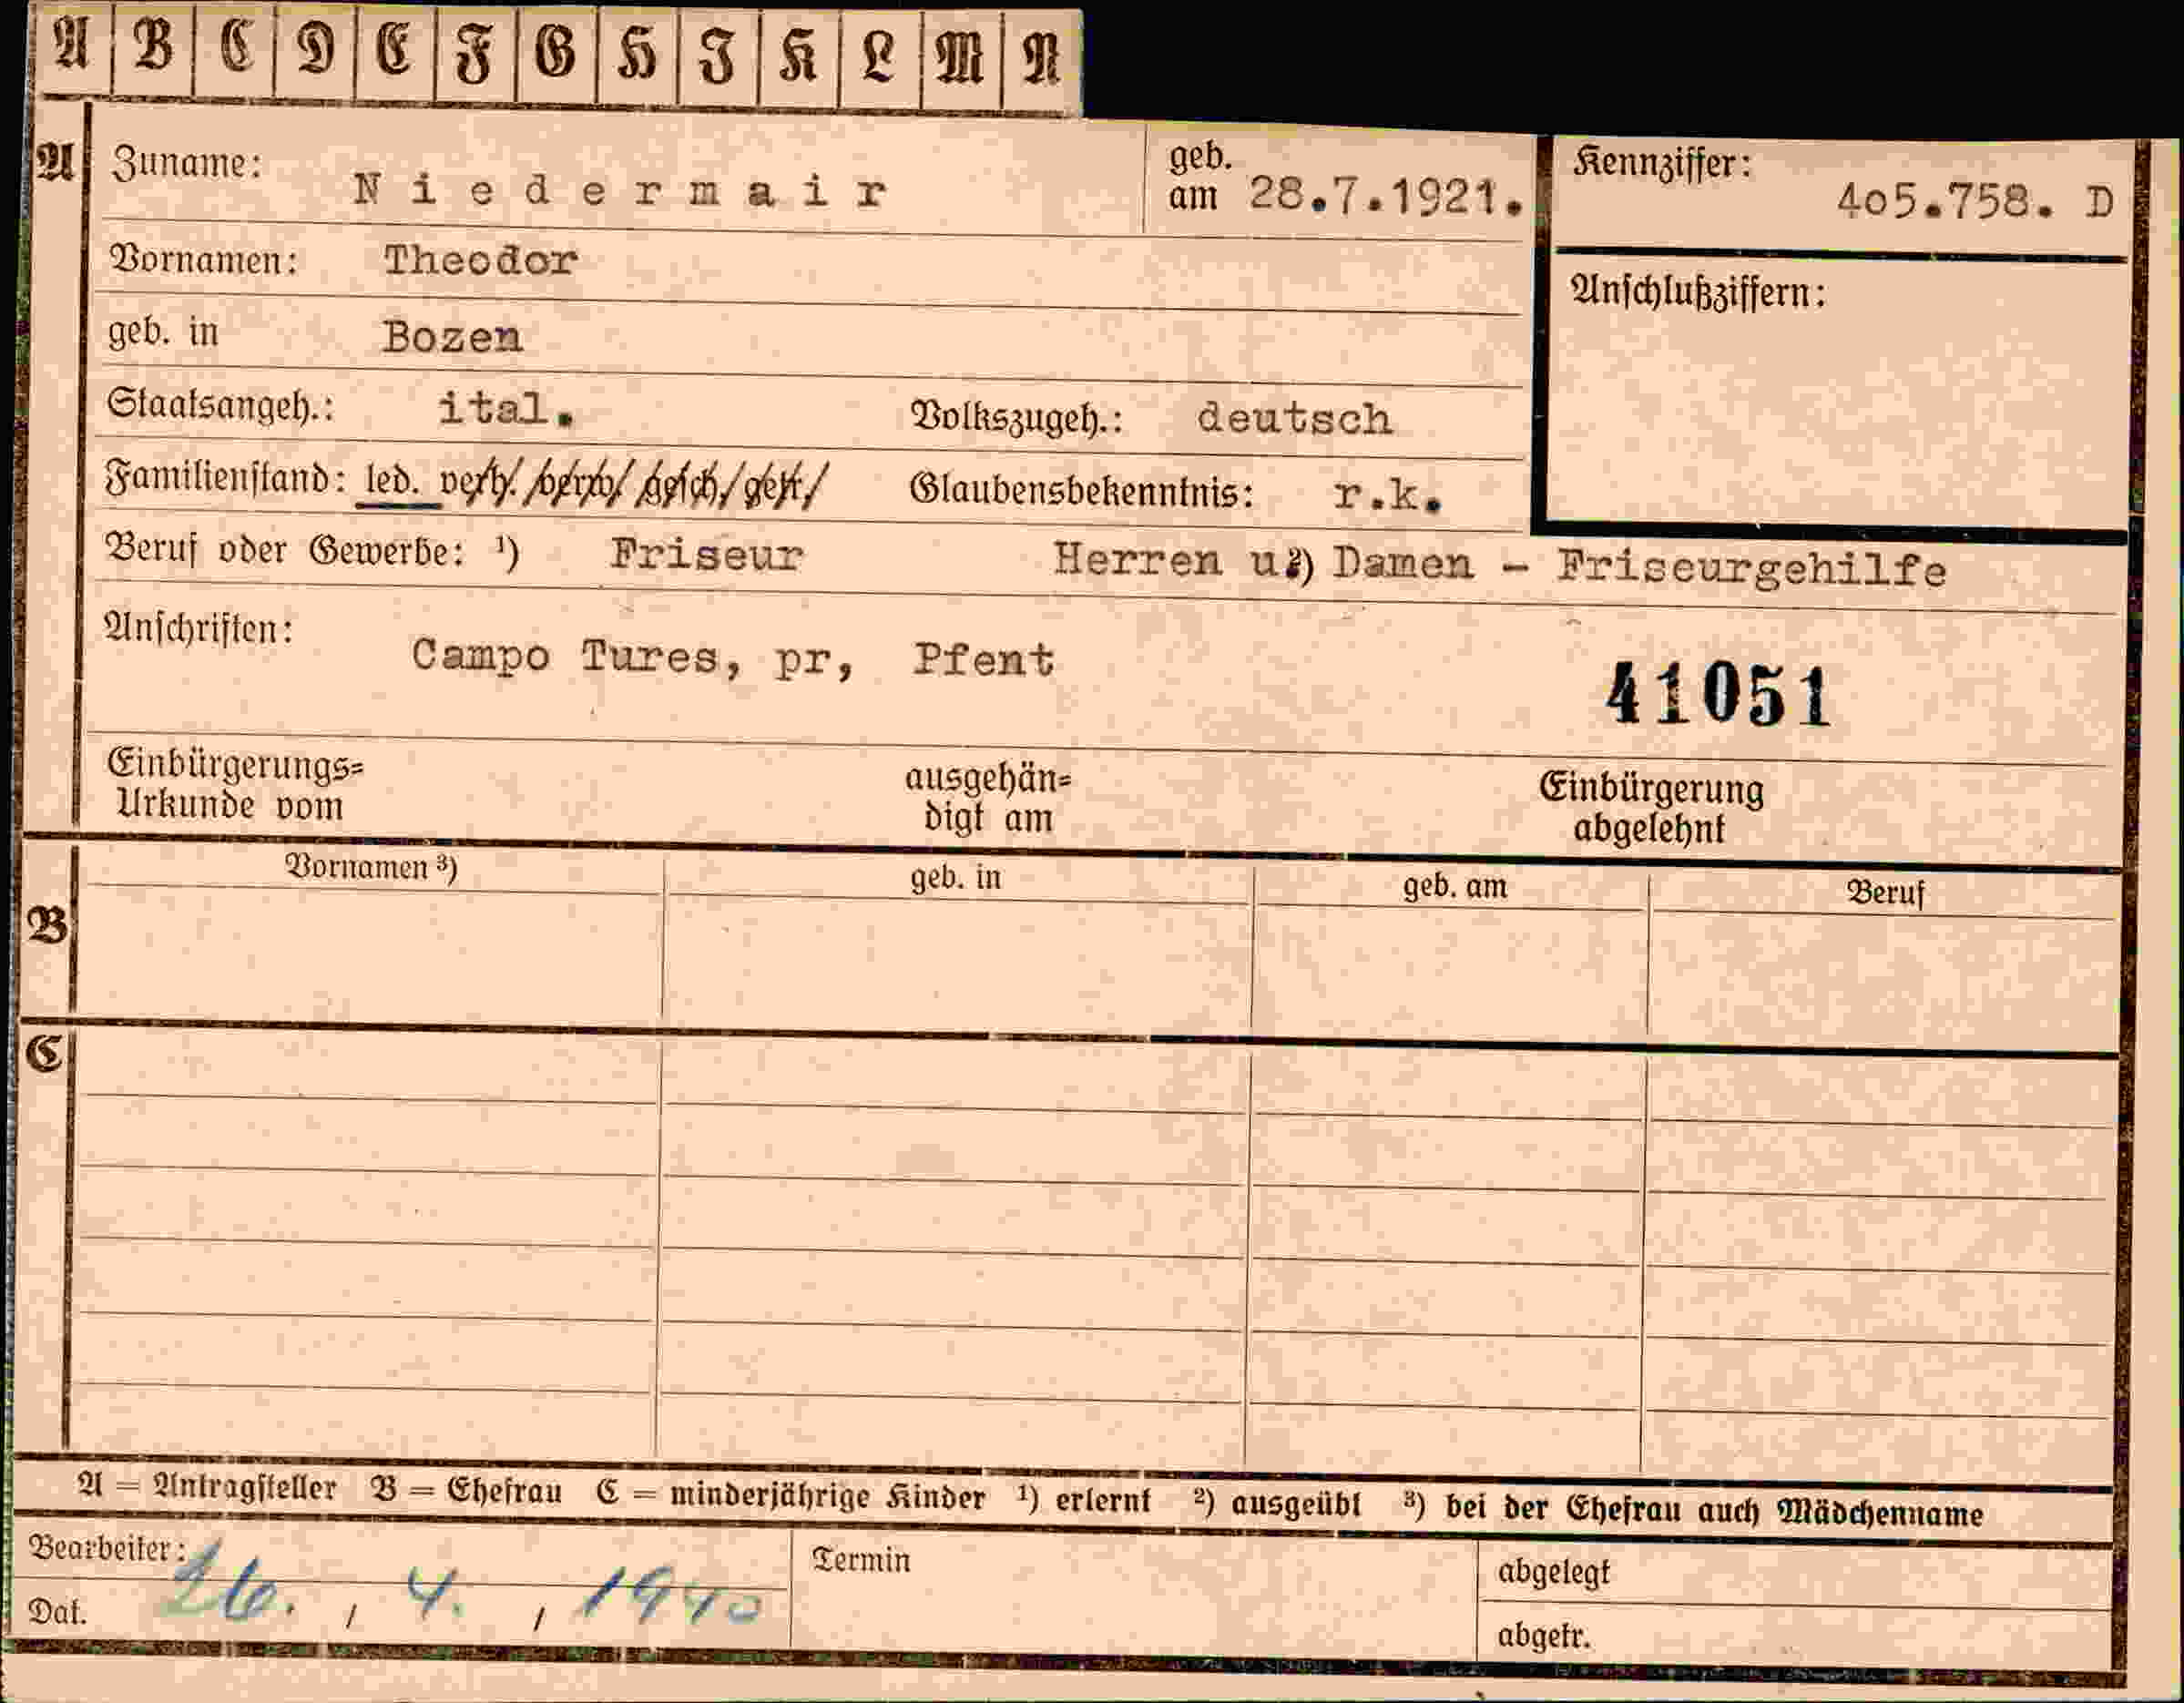 A B C D E F G H I K L M N
A Zuname: Niedermair geb. am 28.7.1921. Kennziffer: 405.758. D
Vornamen: Theodor
Anschlußziffern:
geb. in Bozen
Staatsangeh.: ital. Volkszugeh.: deutsch
Familienstand: led. verh. verw. gesch. getr. Glaubensbekenntnis: r.k.
Beruf oder Gewerbe: ¹) Friseur Herren u. ²) Damen - Friseurgehilfe
Anschriften: Campo Tures, pr, Pfent
41051
Einbürgerungs= ausgehän= Einbürgerung
Urkunde vom digt am abgelehnt
Vornamen ³) geb. in geb. am Beruf
B
C
A = Antragsteller B = Ehefrau C = minderjährige Kinder ¹) erlernt ²) ausgeübt ³) bei der Ehefrau auch Mädchenname
Bearbeiter: Termin abgelegt
Dat. 26. / 4. / 1940 abgetr.